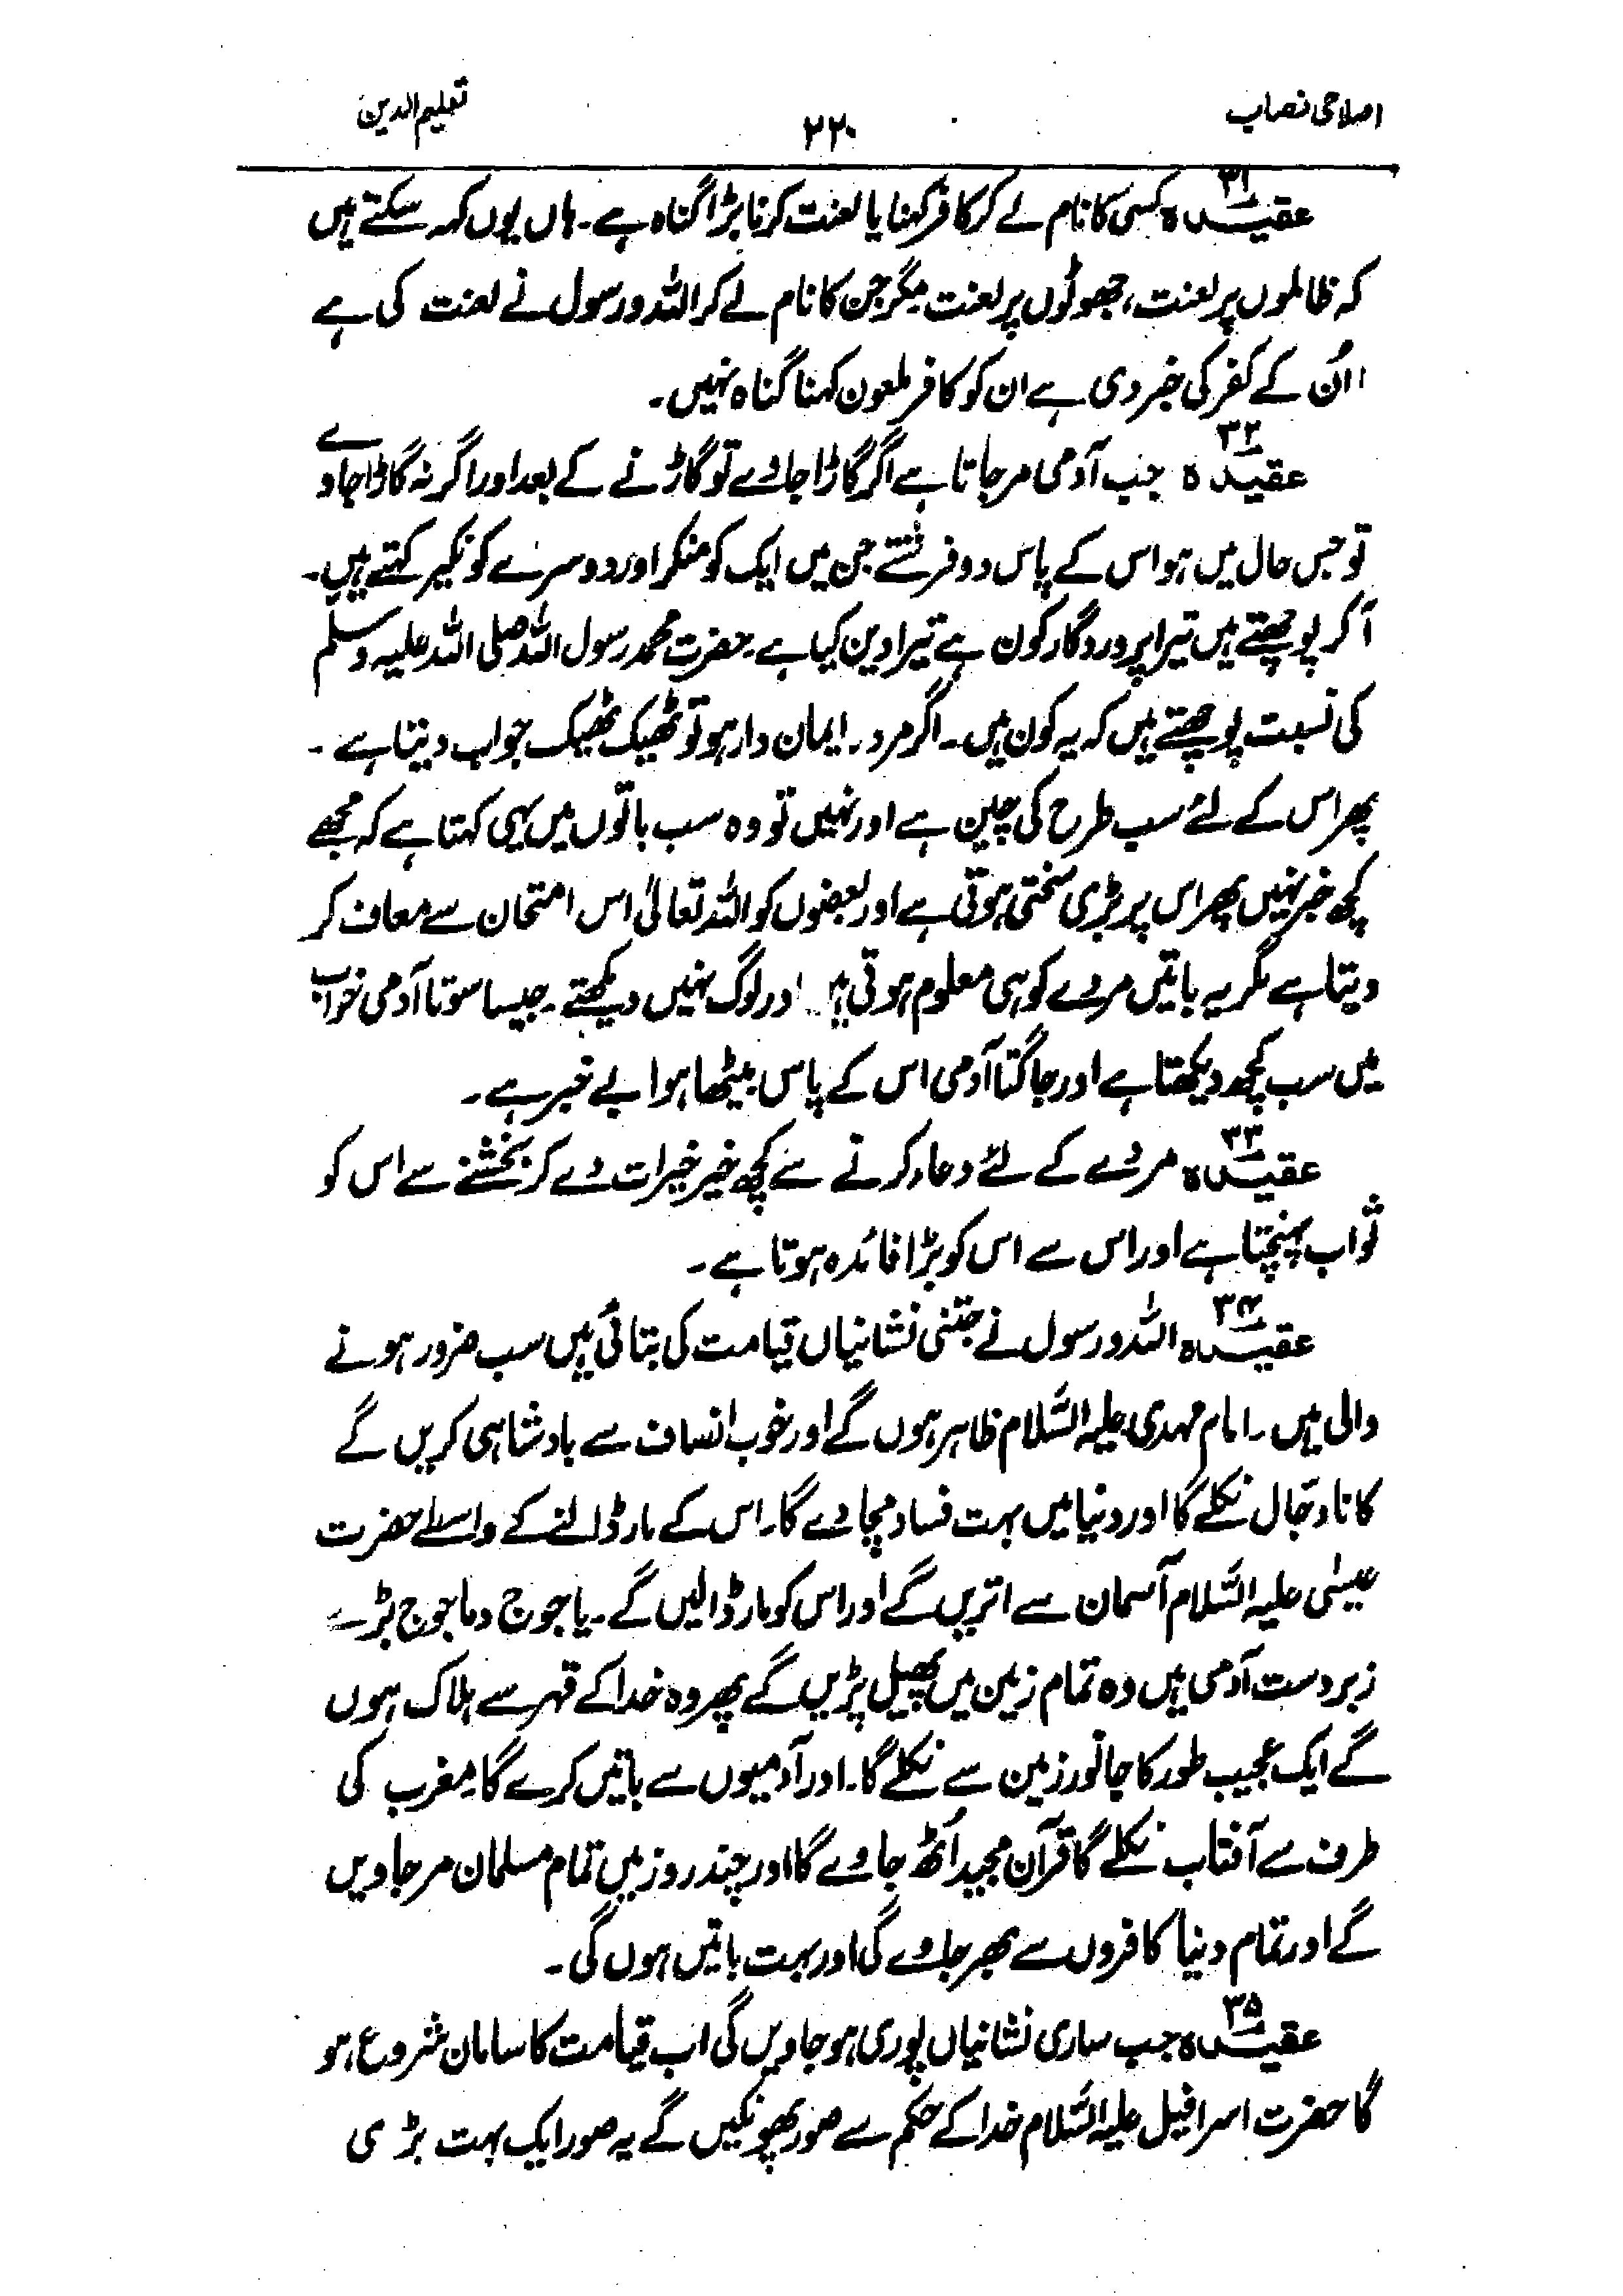 اصلاحی نصاب
۲۲۰
تعلیم الدین
عقیدہ ۳۱ کسی کا نام لے کر کافر کہنا یا لعنت کرنا بڑا گناہ ہے۔ ہاں یوں کہہ سکتے ہیں
کہ ظالموں پر لعنت، جھوٹوں پر لعنت مگر جن کا نام لے کر اللہ و رسول نے لعنت کی ہے
ا اُن کے کفر کی خبر دی ہے ان کو کافر ملعون کہنا گناہ نہیں۔
عقیدہ ۳۲ جب آدمی مر جاتا ہے اگر گاڑا جاوے تو گاڑنے کے بعد اور اگر نہ گاڑا جاوے
تو جس حال میں ہو اس کے پاس دو فرشتے جن میں ایک کو منکر اور دوسرے کو نکیر کہتے ہیں۔
آکر پوچھتے ہیں تیرا پروردگار کون ہے تیرا دین کیا ہے۔ حضرت محمد رسول اللہ صلی اللہ علیہ وسلم
کی نسبت پوچھتے ہیں کہ یہ کون ہیں۔ اگر مردہ ایمان دار ہو تو ٹھیک ٹھیک جواب دیتا ہے۔
پھر اس کے لئے سب طرح کی چین ہے اور نہیں تو وہ سب باتوں میں یہی کہتا ہے کہ مجھے
کچھ خبر نہیں پھر اس پر بڑی سختی ہوتی ہے اور بعضوں کو اللہ تعالیٰ اس امتحان سے معاف کر
دیتا ہے مگر یہ باتیں مردے کو ہی معلوم ہوتی ہیں اور لوگ نہیں دیکھتے۔ جیسا سوتا آدمی خواب
میں سب کچھ دیکھتا ہے اور جاگتا آدمی اس کے پاس بیٹھا ہوا بے خبر ہے۔
عقیدہ ۳۳ مردے کے لئے دعاء کرنے سے کچھ خیر خیرات دے کر بخشنے سے اس کو
ثواب پہنچتا ہے اور اس سے اس کو بڑا فائدہ ہوتا ہے۔
عقیدہ ۳۴ اللہ و رسول نے جتنی نشانیاں قیامت کی بتائی ہیں سب ضرور ہونے
والی ہیں۔ امام مہدی علیہ السّلام ظاہر ہوں گے اور خوب انصاف سے بادشاہی کریں گے
کانا دجّال نکلے گا اور دنیا میں بہت فساد مچاوے گا۔ اس کے مار ڈالنے کے واسطے حضرت
عیسٰی علیہ السّلام آسمان سے اتریں گے اور اس کو مار ڈالیں گے۔ یاجوج و ماجوج بڑے
زبردست آدمی ہیں وہ تمام زمین میں پھیل پڑیں گے پھر وہ خدا کے قہر سے ہلاک ہوں
گے ایک عجیب طور کا جانور زمین سے نکلے گا۔ اور آدمیوں سے باتیں کرے گا۔ مغرب کی
طرف سے آفتاب نکلے گا قرآن مجید اُٹھ جاوے گا اور چند روز میں تمام مسلمان مر جاویں
گے اور تمام دنیا کافروں سے بھر جاوے گی اور بہت باتیں ہوں گی۔
عقیدہ ۳۵ جب ساری نشانیاں پوری ہو جاویں گی اب قیامت کا سامان شروع ہو
گا حضرت اسرافیل علیہ السّلام خدا کے حکم سے صور پھونکیں گے یہ صور ایک بہت بڑی